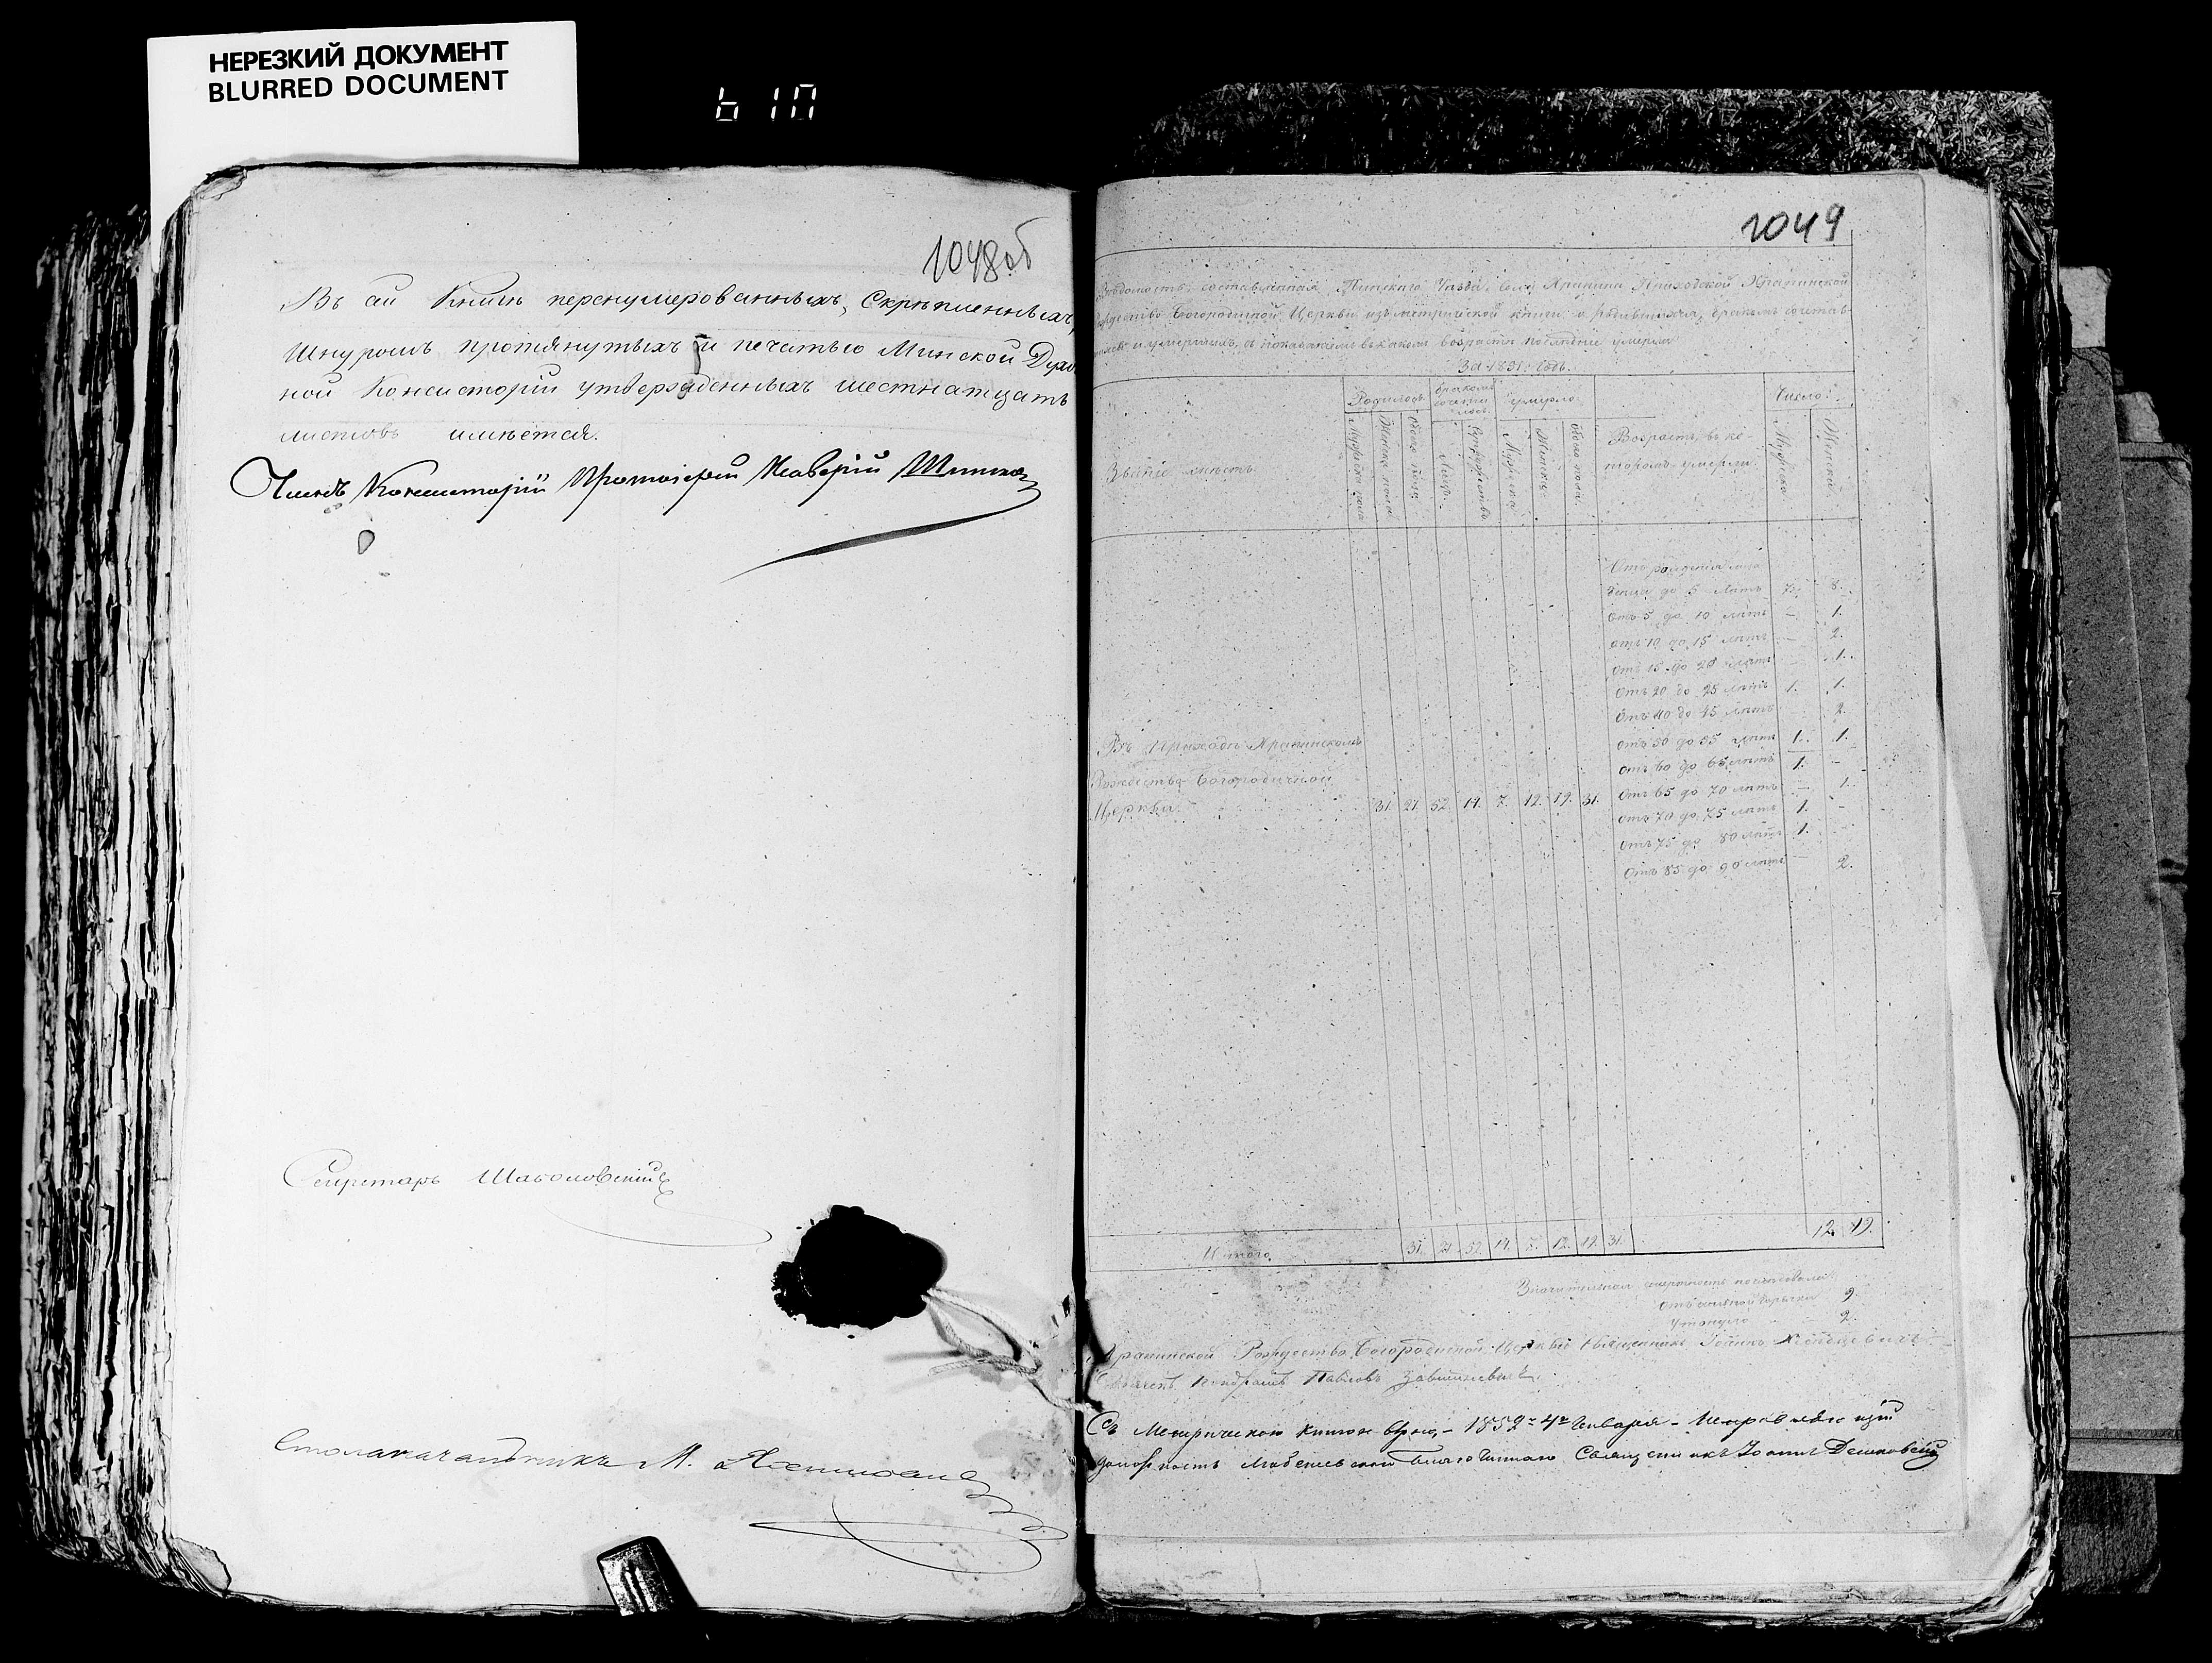 НЕРЕЗКИЙ ДОКУМЕНТ
BLURRED DOCUMENT
1048об
Въ сей Книгѣ перенумерованныхъ, Скрѣпленныхъ,
Шнуромъ протянутыхъ и печатью Минской Духов
ной Консисторіи утвержденныхъ шестнатцать
листовъ имѣется.
Членъ Консисторіи Протоіерей
Секретарь
Столоначальникъ М.
1049
Пинскаго Уѣзда Приходской
Богородичной Церкви изъ метрической книги о родившихся, бракомъ сочетав
и умершихъ, съ показаніемъ въ какомъ возрастѣ послѣдніе умерли
За 1851: годъ.
Родилось
бракомъ сочета лось
умерло
Число:
Званіе мѣстъ.
Мужеска пола
Женска пола
Обоего пола
Лицъ.
Супружествъ
Мужеска.
Женска.
Обоего пола.
Возрастъ, въ ко
торомъ умерли.
Мужеска.
Женска.
Отъ рожденія мла
денцы до 5 лѣтъ 7. 8.
отъ 5 до 10 лѣтъ — 1.
отъ 10 до 15 лѣтъ — 2.
отъ 15 до 20 лѣтъ — 1.
отъ 20 до 25 лѣтъ 1. 1.
отъ 40 до 45 лѣтъ 2.
отъ 50 до 55 лѣтъ 1. 1.
отъ 60 до 65 лѣтъ 1. —
отъ 65 до 70 лѣтъ — 1.
отъ 70 до 75 лѣтъ 1. —
отъ 75 до 80 лѣтъ 1. —
отъ 85 до 90 лѣтъ — 2.
Въ Приходѣ
Рождество Богородичной
Церкви 31. 21. 52. 14. 7. 12. 19. 31.
Итого 31. 21. 52. 14. 7. 12. 19. 31. 12. 19.
Значительная смертность послѣдовала
отъ горячки 9.
Утонуло 2.
Рождество Богородичной Церкви Священникъ Іоаннъ
Павловъ
Съ Метрическою книгою вѣрно, — 1852 г. 4 Января —
должность Благочиннаго Священникъ Іоаннъ